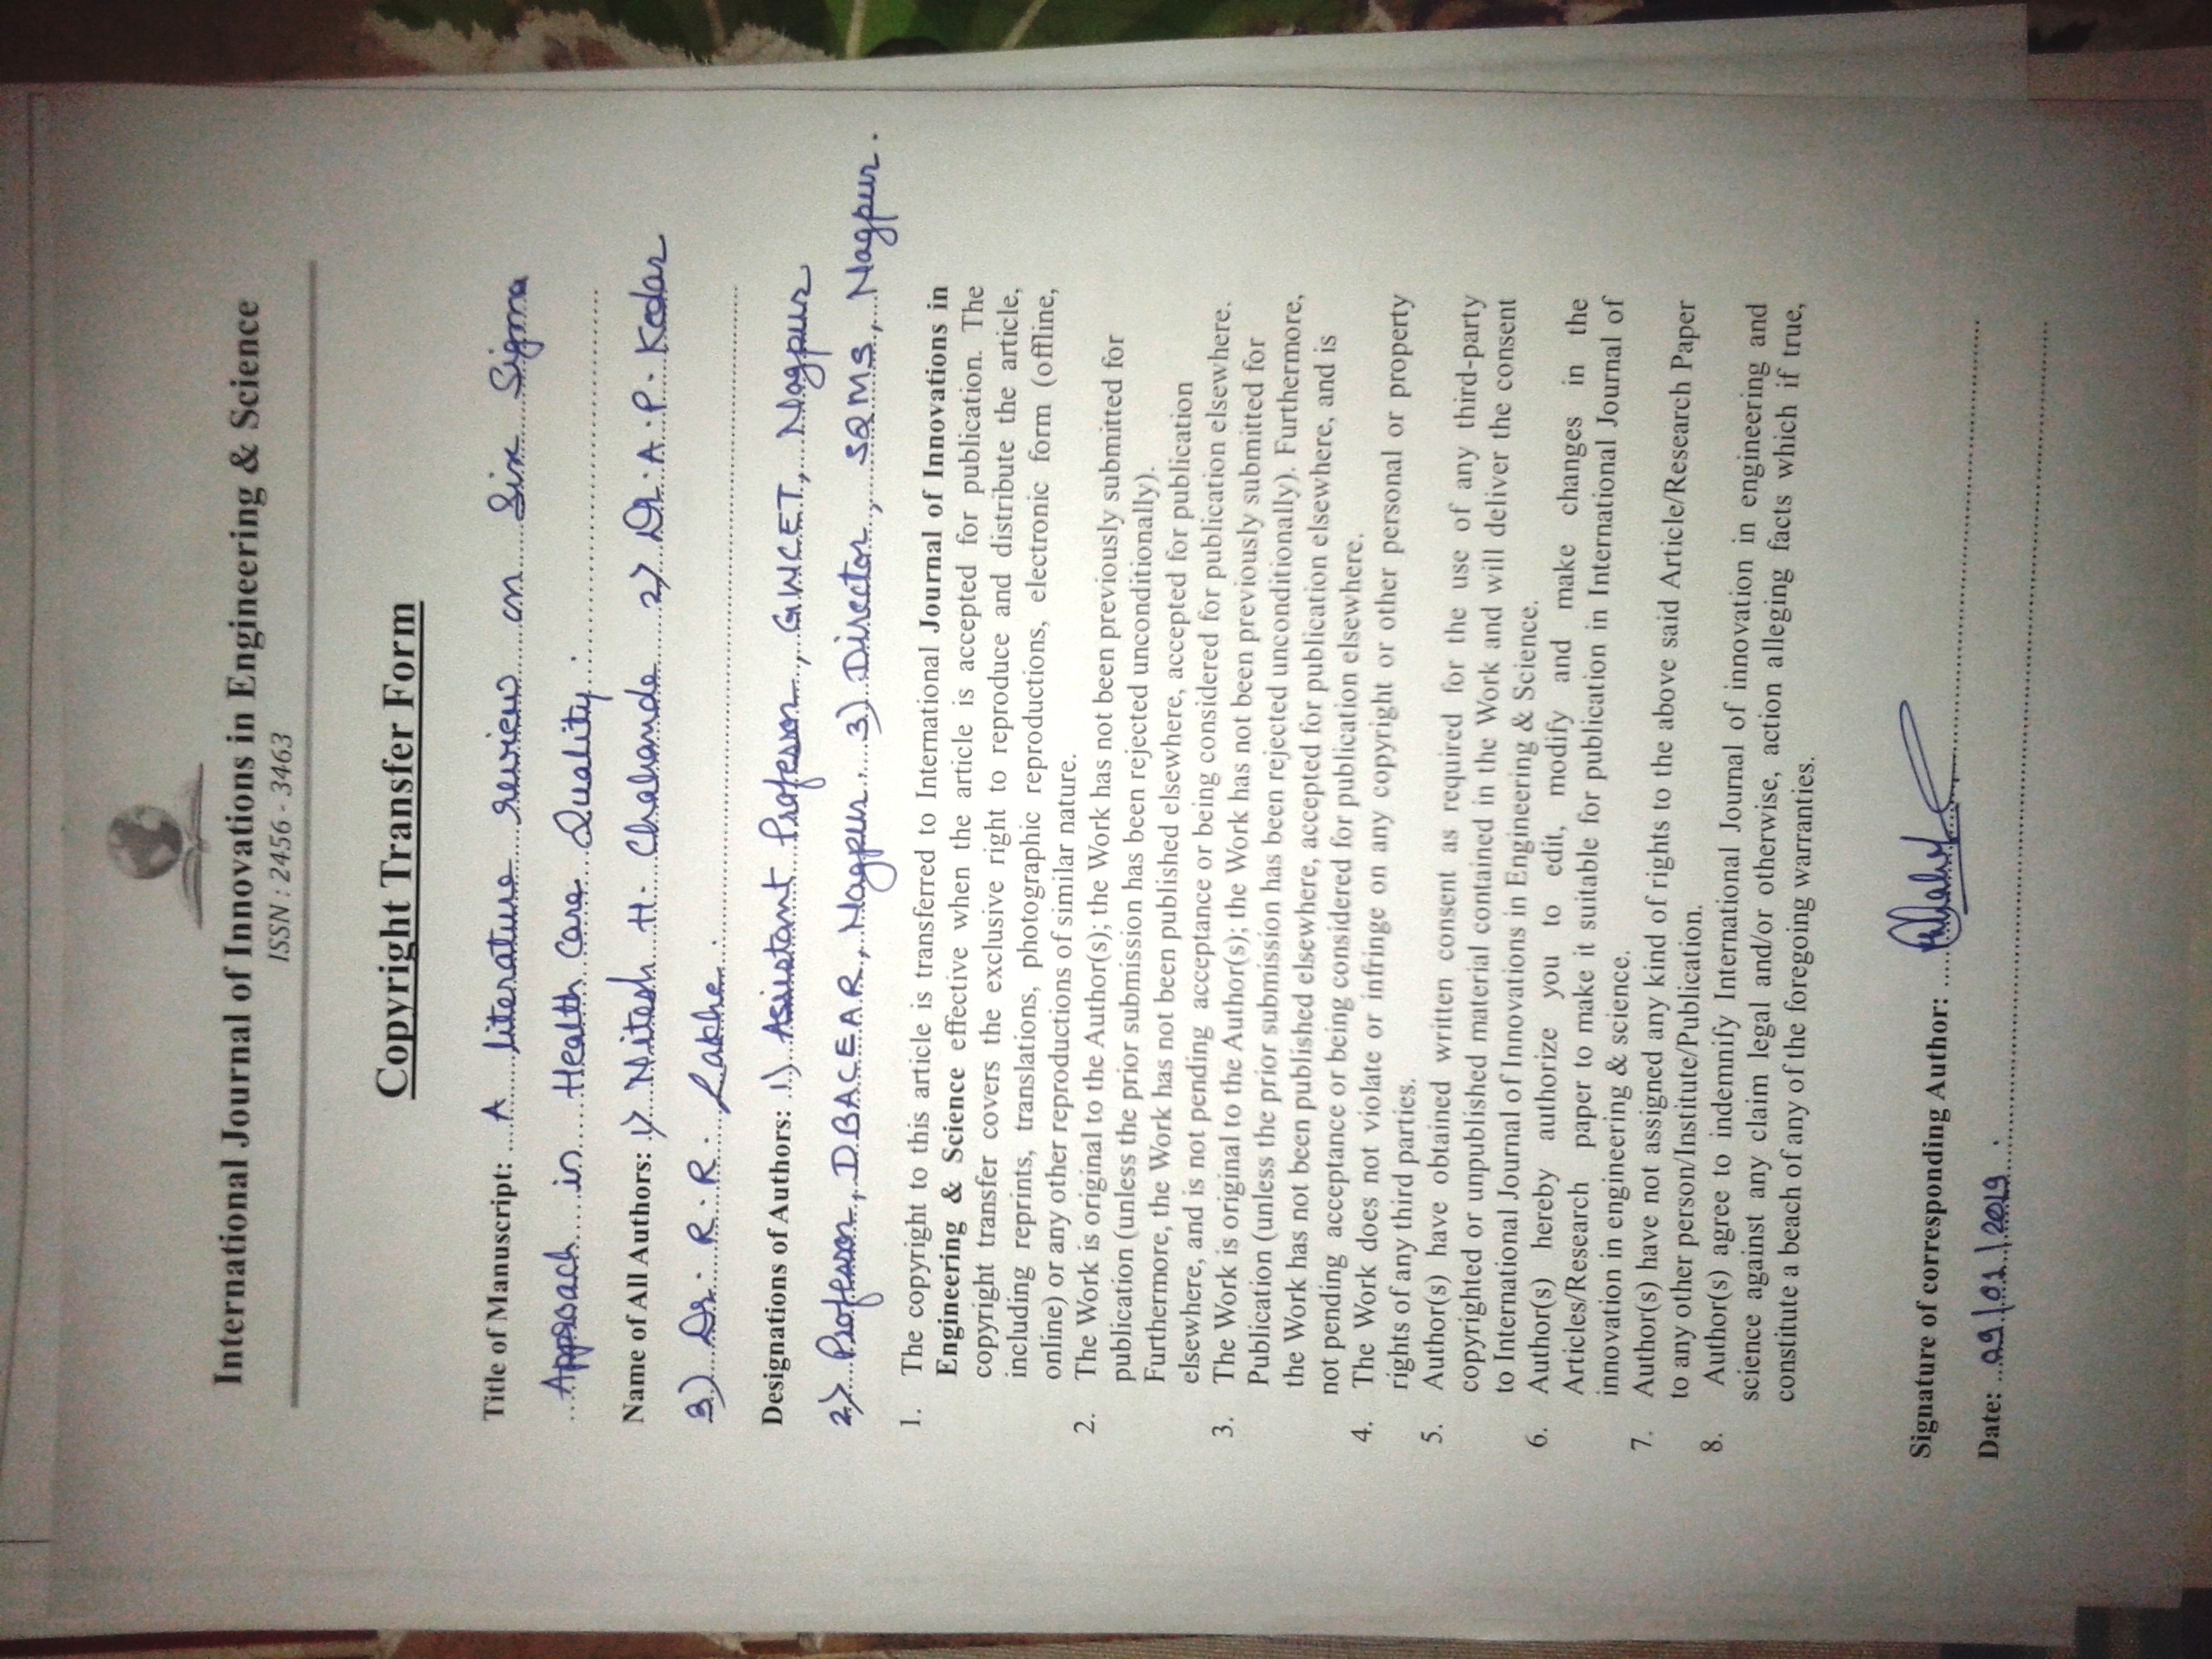 International Journal of Innovations in Engineering & Science
ISSN : 2456 - 3463
Copyright Transfer Form
Title of Manuscript: A literature review on Six Sigma
Approach in Health Care Quality.
Name of All Authors: 1) Nitesh H. Chahande 2) Dr. A. P. Kedar
3) Dr. R. R. Lakhe.
Designations of Authors: 1) Assistant Professor, GWCET, Nagpur
2) Professor, DBACEAR, Nagpur. 3) Director, SQMS, Nagpur.
1. The copyright to this article is transferred to International Journal of Innovations in
Engineering & Science effective when the article is accepted for publication. The
copyright transfer covers the exclusive right to reproduce and distribute the article,
including reprints, translations, photographic reproductions, electronic form (offline,
online) or any other reproductions of similar nature.
2. The Work is original to the Author(s); the Work has not been previously submitted for
publication (unless the prior submission has been rejected unconditionally).
Furthermore, the Work has not been published elsewhere, accepted for publication
elsewhere, and is not pending acceptance or being considered for publication elsewhere.
3. The Work is original to the Author(s); the Work has not been previously submitted for
Publication (unless the prior submission has been rejected unconditionally). Furthermore,
the Work has not been published elsewhere, accepted for publication elsewhere, and is
not pending acceptance or being considered for publication elsewhere.
4. The Work does not violate or infringe on any copyright or other personal or property
rights of any third parties.
5. Author(s) have obtained written consent as required for the use of any third-party
copyrighted or unpublished material contained in the Work and will deliver the consent
to International Journal of Innovations in Engineering & Science.
6. Author(s) hereby authorize you to edit, modify and make changes in the
Articles/Research paper to make it suitable for publication in International Journal of
innovation in engineering & science.
7. Author(s) have not assigned any kind of rights to the above said Article/Research Paper
to any other person/Institute/Publication.
8. Author(s) agree to indemnify International Journal of innovation in engineering and
science against any claim legal and/or otherwise, action alleging facts which if true,
constitute a beach of any of the foregoing warranties.
Signature of corresponding Author:
Date: 29/01/2019.